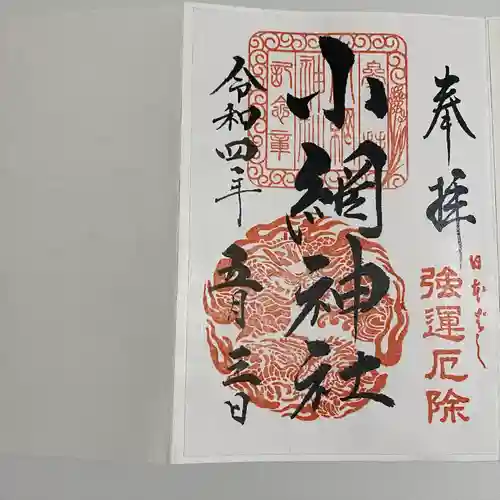 奉拝
日本ばし
強運厄除
小網神社
令和四年
五月三日